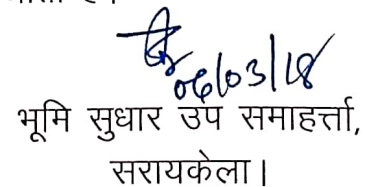 06/03/18
भूमि सुधार उप समाहर्त्ता,
सरायकेला।